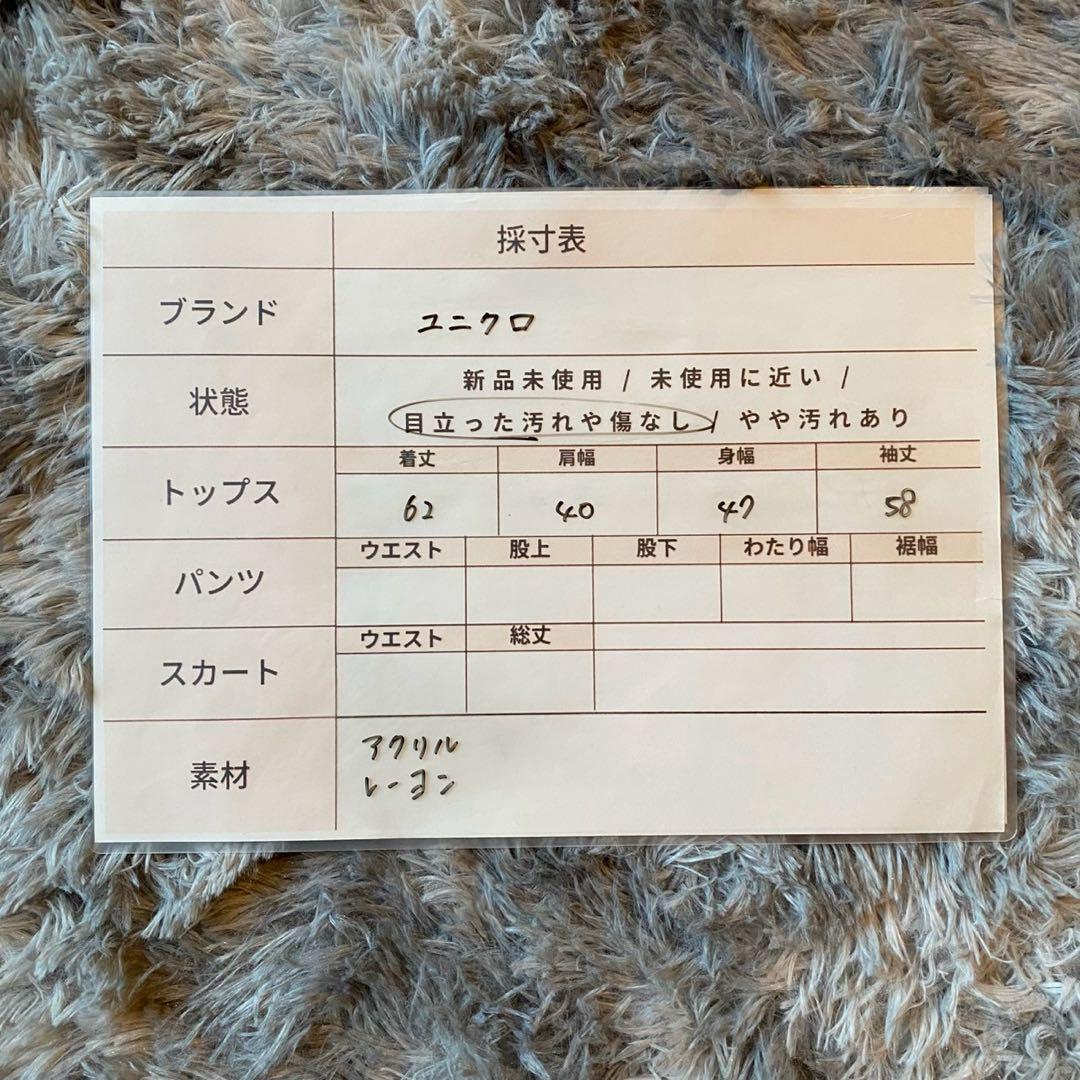 採寸表
ブランド ユニクロ
状態 新品未使用 / 未使用に近い /
目立った汚れや傷なし / やや汚れあり
トップス 着丈 肩幅 身幅 袖丈
62 40 47 58
パンツ ウエスト 股上 股下 わたり幅 裾幅
スカート ウエスト 総丈
素材 アクリル
レーヨン